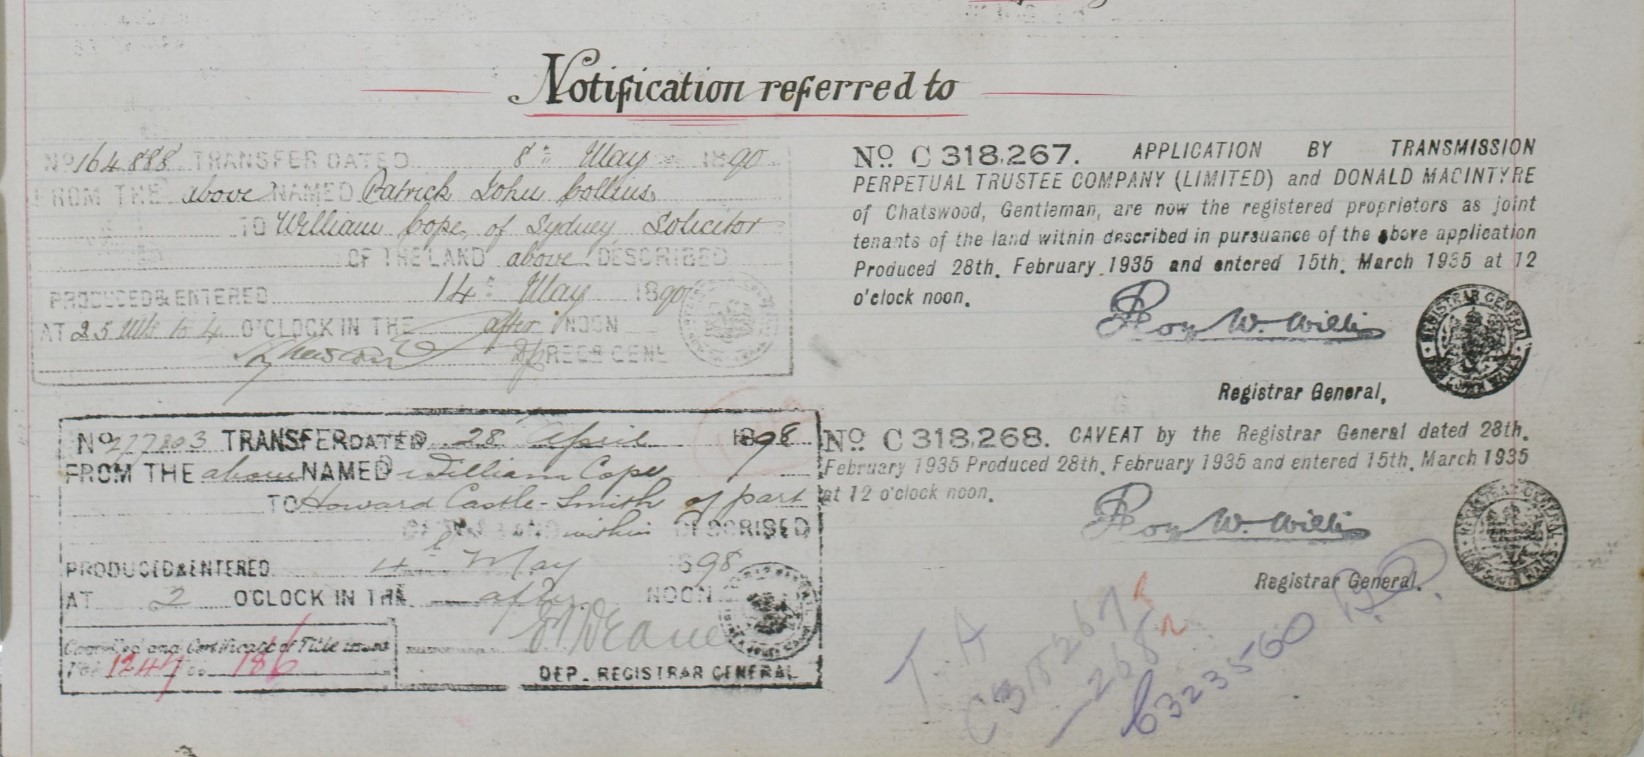 Notification referred to
No 164888 TRANSFER DATED 8th May 1890
FROM THE above NAMED Patrick John Collins
TO William Cope, of Sydney Solicitor
OF THE LAND above DESCRIBED
PRODUCED & ENTERED 14th May 1890
AT 25 Mts to 4 O'CLOCK IN THE after NOON
REGR GENL
No 277203 TRANSFER DATED 28 April 1898
FROM THE above NAMED William Cope
TO Howard Castle-Smith of part
OF THE LAND within DESCRIBED
PRODUCED & ENTERED 4 May 1898
AT 2 O'CLOCK IN THE after NOON
Cancelled and Certificate of Title issued
Vol 1247 Fo 186
DEP. REGISTRAR GENERAL
No. C 318,267. APPLICATION BY TRANSMISSION
PERPETUAL TRUSTEE COMPANY (LIMITED) and DONALD MACINTYRE
of Chatswood, Gentleman, are now the registered proprietors as joint
tenants of the land within described in pursuance of the above application
Produced 28th. February 1935 and entered 15th. March 1935 at 12
o'clock noon.
Roy W. Willis
REGISTRAR GENERAL NEW SOUTH WALES
Registrar General.
No. C 318,268. CAVEAT by the Registrar General dated 28th.
February 1935 Produced 28th. February 1935 and entered 15th. March 1935
at 12 o'clock noon.
Roy W. Willis
REGISTRAR GENERAL NEW SOUTH WALES
Registrar General.
T.A
C318267 R
268 R
C323560